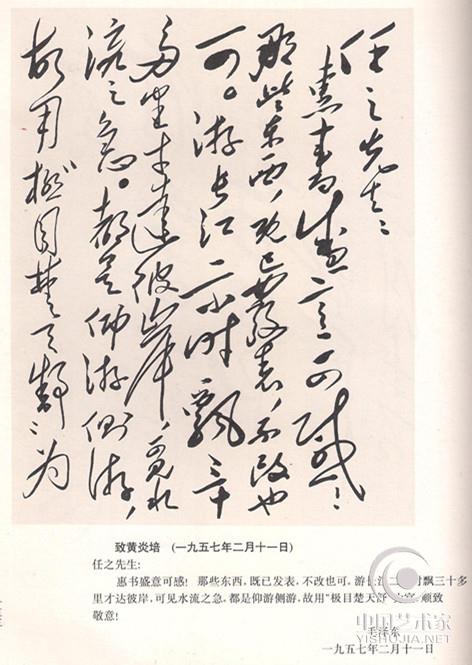 任之先生:
惠书盛意可感!
那些东西,既已发表,不改也
可。游长江二小时飘三十
多里才达彼岸,可见水
流之急。都是仰游侧游,
故用极目楚天舒为
致黄炎培 (一九五七年二月十一日)
任之先生:
惠书盛意可感! 那些东西,既已发表,不改也可,游长江二小时飘三十多
里才达彼岸,可见水流之急,都是仰游侧游,故用“极目楚天舒”为宜。顺致
敬意!
毛泽东
一九五七年二月十一日
中国艺术家